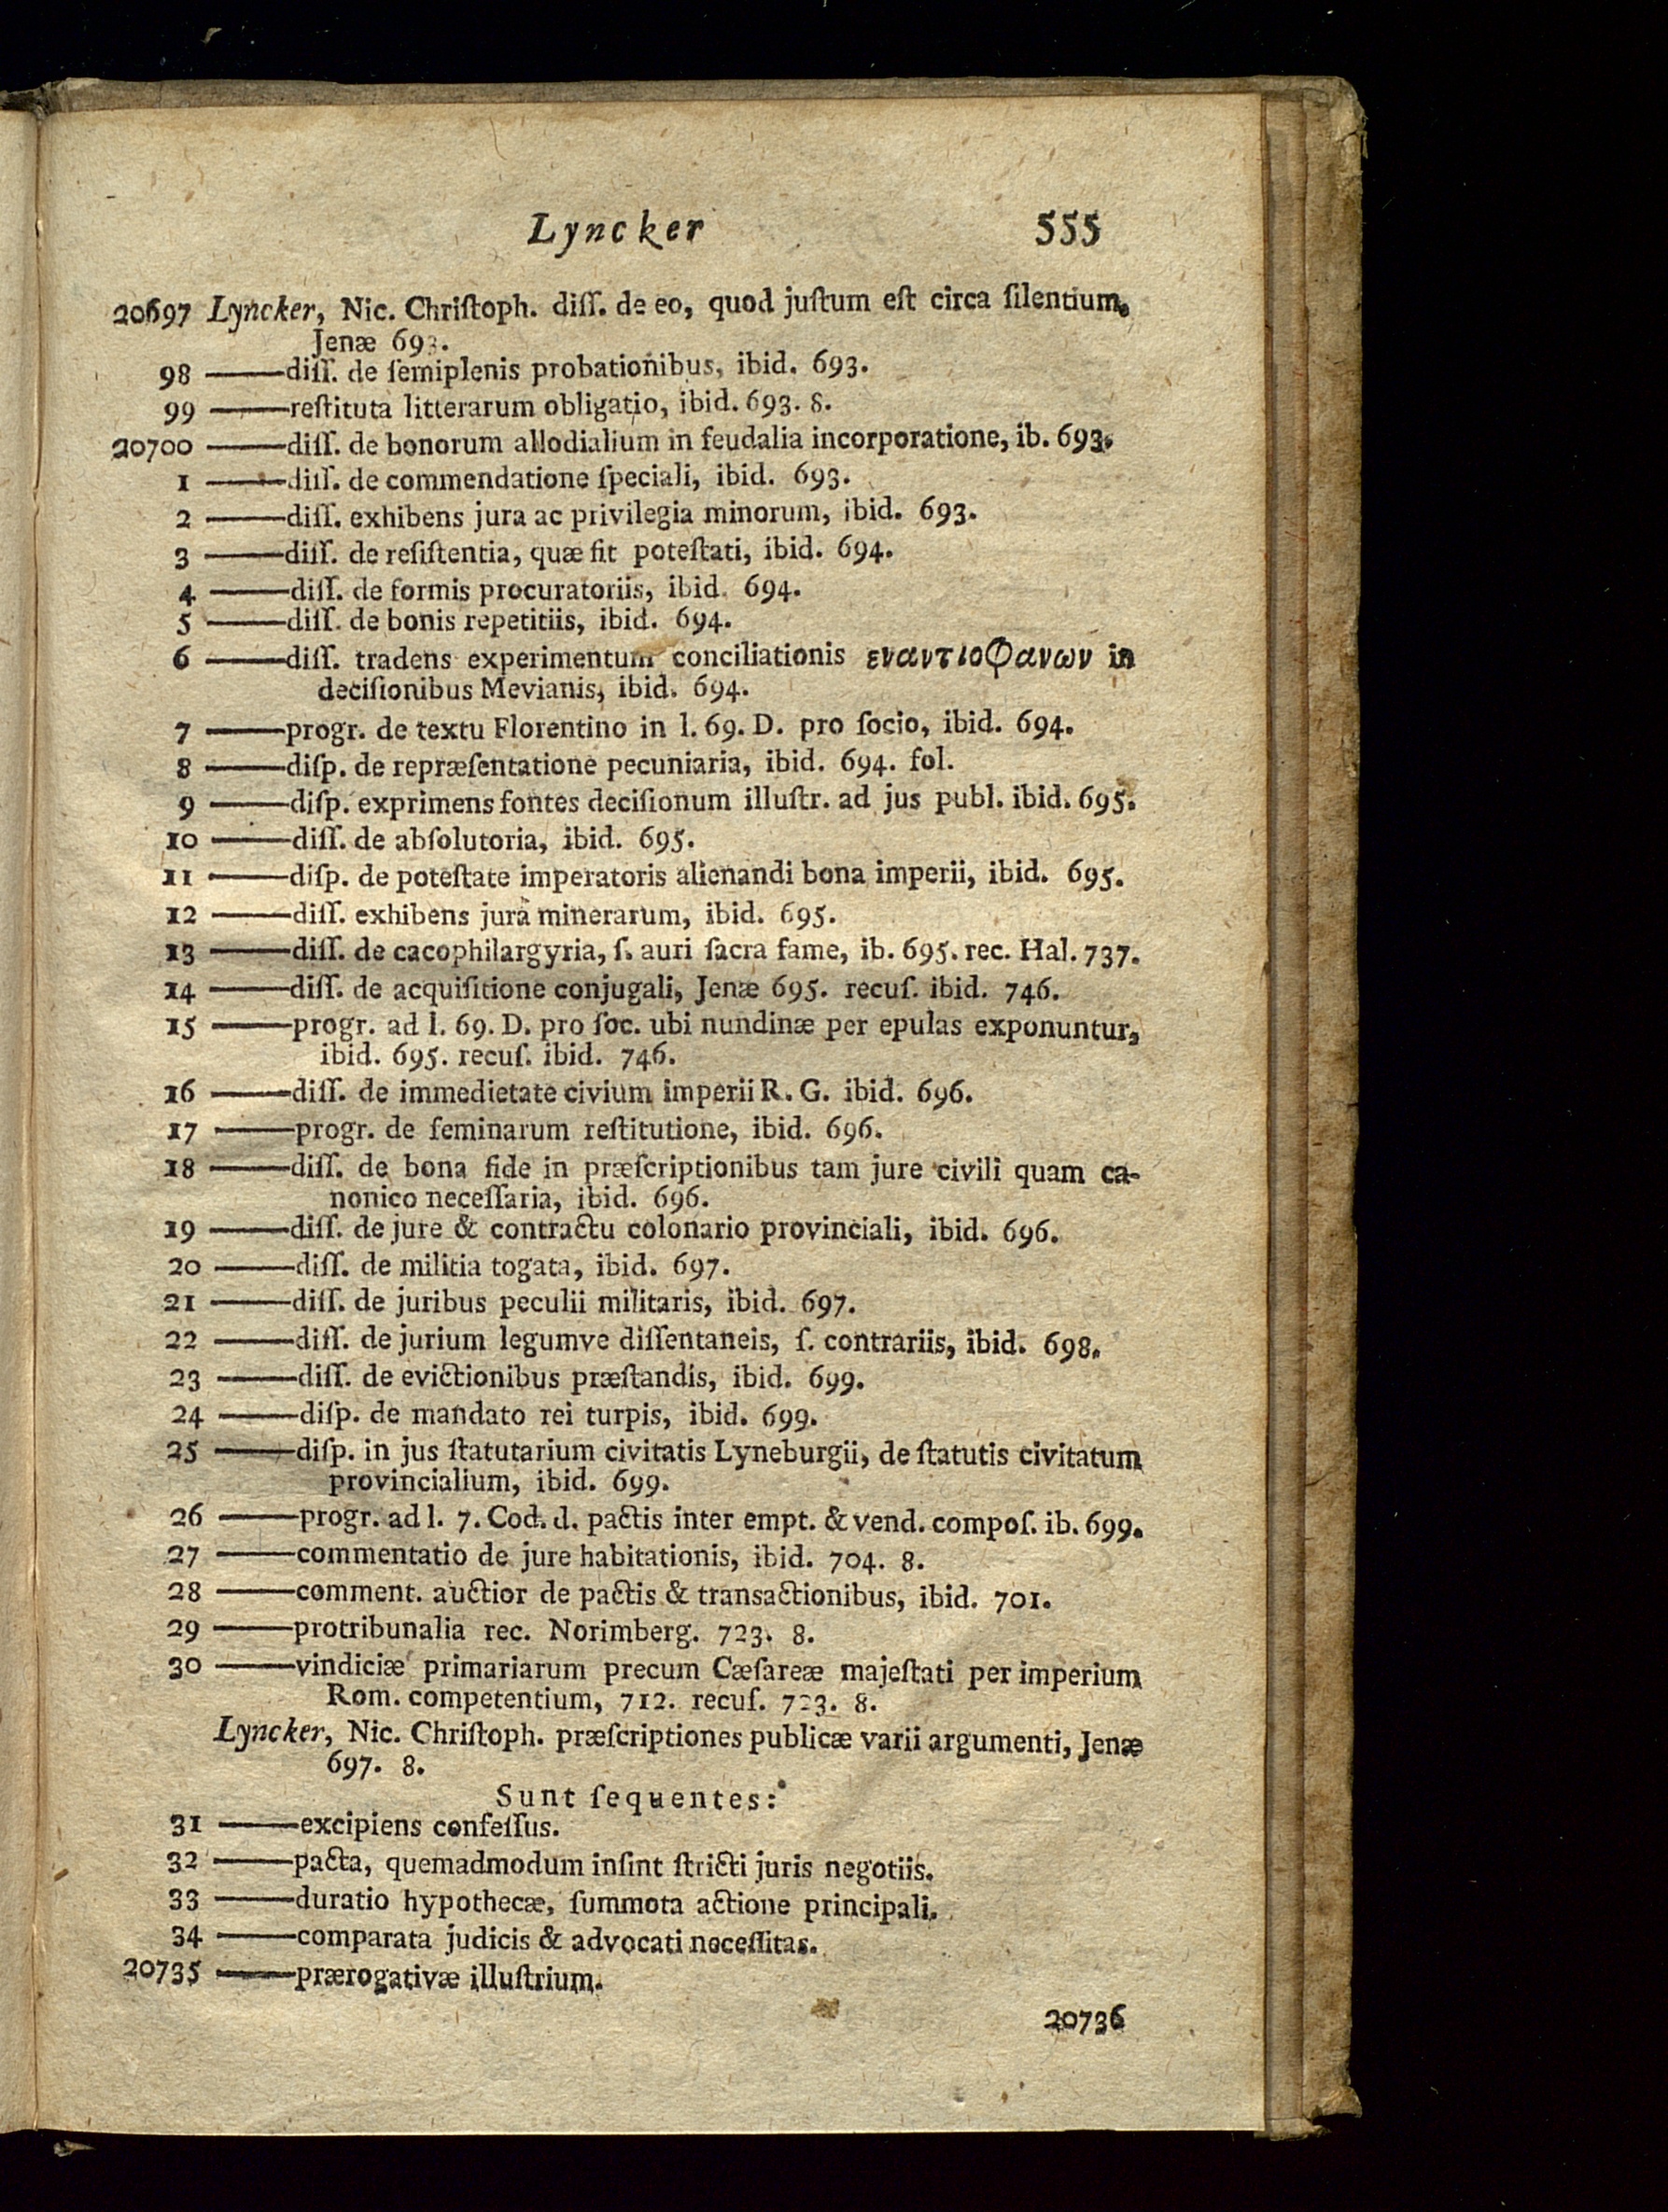 Lyncker 555
20697 Lyncker, Nic. Chriſtoph. diſſ. de eo, quod juſtum eſt circa ſilentium.
Jenæ 693.
98 ——diſſ. de ſemiplenis probationibus, ibid. 693.
99 ——reſtituta litterarum obligatio, ibid. 693. 8.
20700 ——diſſ. de bonorum allodialium in feudalia incorporatione, ib. 693.
1 ——diſſ. de commendatione ſpeciali, ibid. 693.
2 ——diſſ. exhibens jura ac privilegia minorum, ibid. 693.
3 ——diſſ. de reſiſtentia, quæ fit poteſtati, ibid. 694.
4 ——diſſ. de formis procuratoriis, ibid. 694.
5 ——diſſ. de bonis repetitiis, ibid. 694.
6 ——diſſ. tradens experimentum conciliationis εναντιοφανων in
deciſionibus Mevianis, ibid. 694.
7 ——progr. de textu Florentino in l. 69. D. pro ſocio, ibid. 694.
8 ——diſp. de repræſentatione pecuniaria, ibid. 694. fol.
9 ——diſp. exprimens fontes deciſionum illuſtr. ad jus publ. ibid. 695.
10 ——diſſ. de abſolutoria, ibid. 695.
11 ——diſp. de poteſtate imperatoris alienandi bona imperii, ibid. 695.
12 ——diſſ. exhibens jura minerarum, ibid. 695.
13 ——diſſ. de cacophilargyria, ſ. auri ſacra fame, ib. 695. rec. Hal. 737.
14 ——diſſ. de acquiſitione conjugali, Jenæ 695. recuſ. ibid. 746.
15 ——progr. ad l. 69. D. pro ſoc. ubi nundinæ per epulas exponuntur,
ibid. 695. recuſ. ibid. 746.
16 ——diſſ. de immedietate civium imperii R. G. ibid. 696.
17 ——progr. de ſeminarum reſtitutione, ibid. 696.
18 ——diſſ. de bona fide in præſcriptionibus tam jure civili quam ca-
nonico neceſſaria, ibid. 696.
19 ——diſſ. de jure & contractu colonario provinciali, ibid. 696.
20 ——diſſ. de militia togata, ibid. 697.
21 ——diſſ. de juribus peculii militaris, ibid. 697.
22 ——diſſ. de jurium legumve diſſentaneis, ſ. contrariis, ibid. 698.
23 ——diſſ. de evictionibus præſtandis, ibid. 699.
24 ——diſp. de mandato rei turpis, ibid. 699.
25 ——diſp. in jus ſtatutarium civitatis Lyneburgii, de ſtatutis civitatum
provincialium, ibid. 699.
26 ——progr. ad l. 7. Cod. d. pactis inter empt. & vend. compoſ. ib. 699.
27 ——commentatio de jure habitationis, ibid. 704. 8.
28 ——comment. auctior de pactis & transactionibus, ibid. 701.
29 ——protribunalia rec. Norimberg. 723. 8.
30 ——vindiciæ primariarum precum Cæſareæ majeſtati per imperium
Rom. competentium, 712. recuſ. 723. 8.
Lyncker, Nic. Chriſtoph. præſcriptiones publicæ varii argumenti, Jenæ
697. 8.
Sunt ſequentes:
31 ——excipiens confeſſus.
32 ——pacta, quemadmodum inſint ſtricti juris negotiis.
33 ——duratio hypothecæ, ſummota actione principali.
34 ——comparata judicis & advocati neceſſitas.
20735 ——prærogativæ illuſtrium.
20736